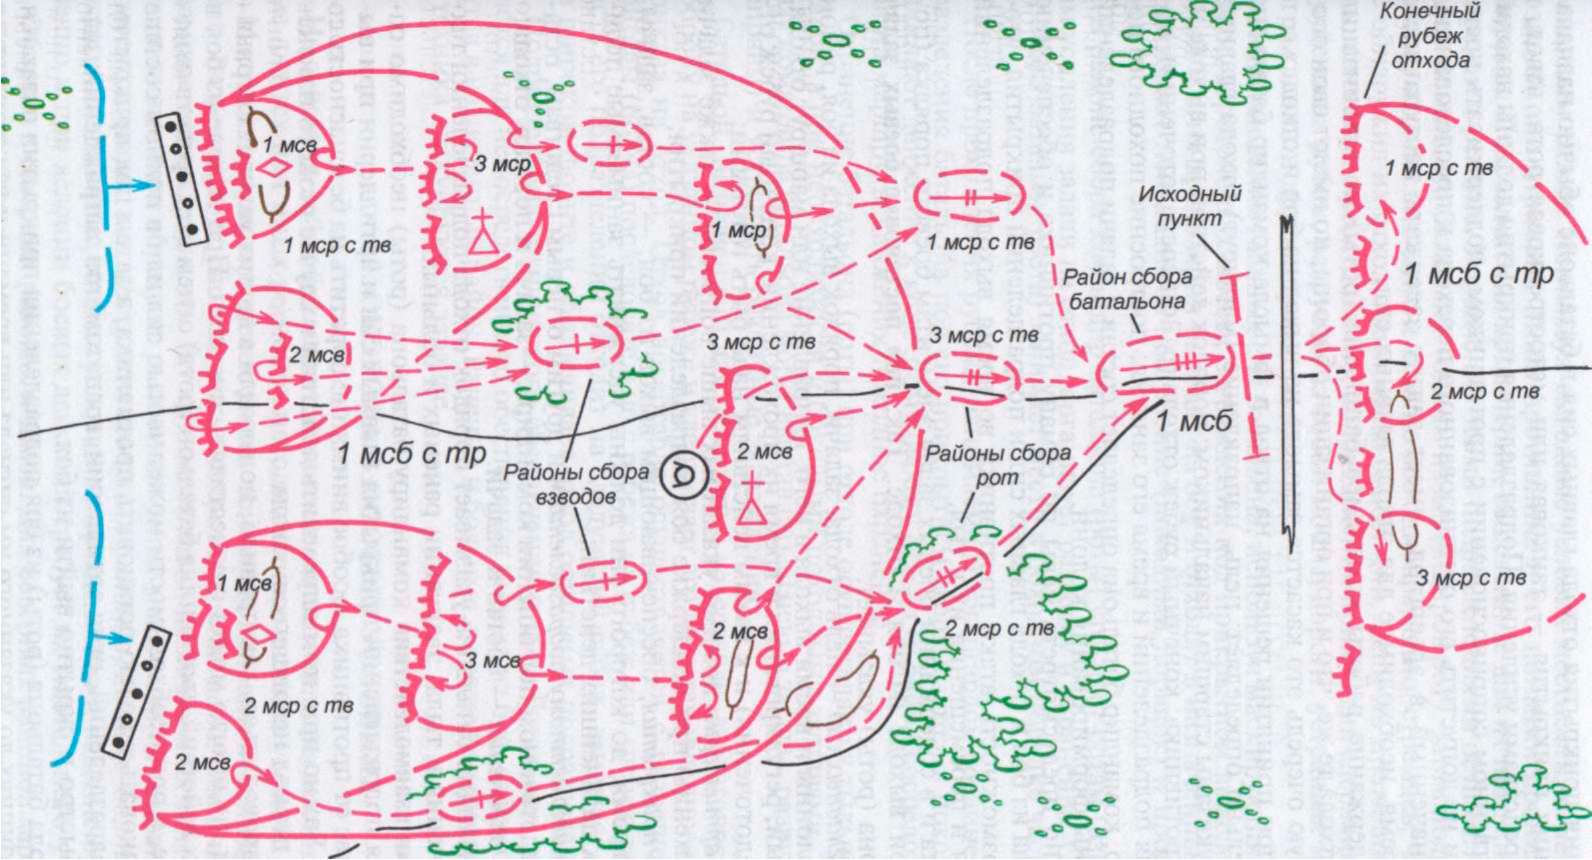 Конечный
рубеж
отхода
1 мсв
3 мср
1 мср с тв
1 мср
1 мср с тв
Исходный
пункт
1 мср с тв
1 мсб с тр
Район сбора
батальона
2 мсв
3 мср с тв
3 мср с тв
2 мср с тв
1 мсб
1 мсб с тр
Районы сбора
взводов
2 мсв
Районы сбора
рот
1 мсв
3 мсв
2 мсв
2 мср с тв
3 мср с тв
2 мср с тв
2 мсв